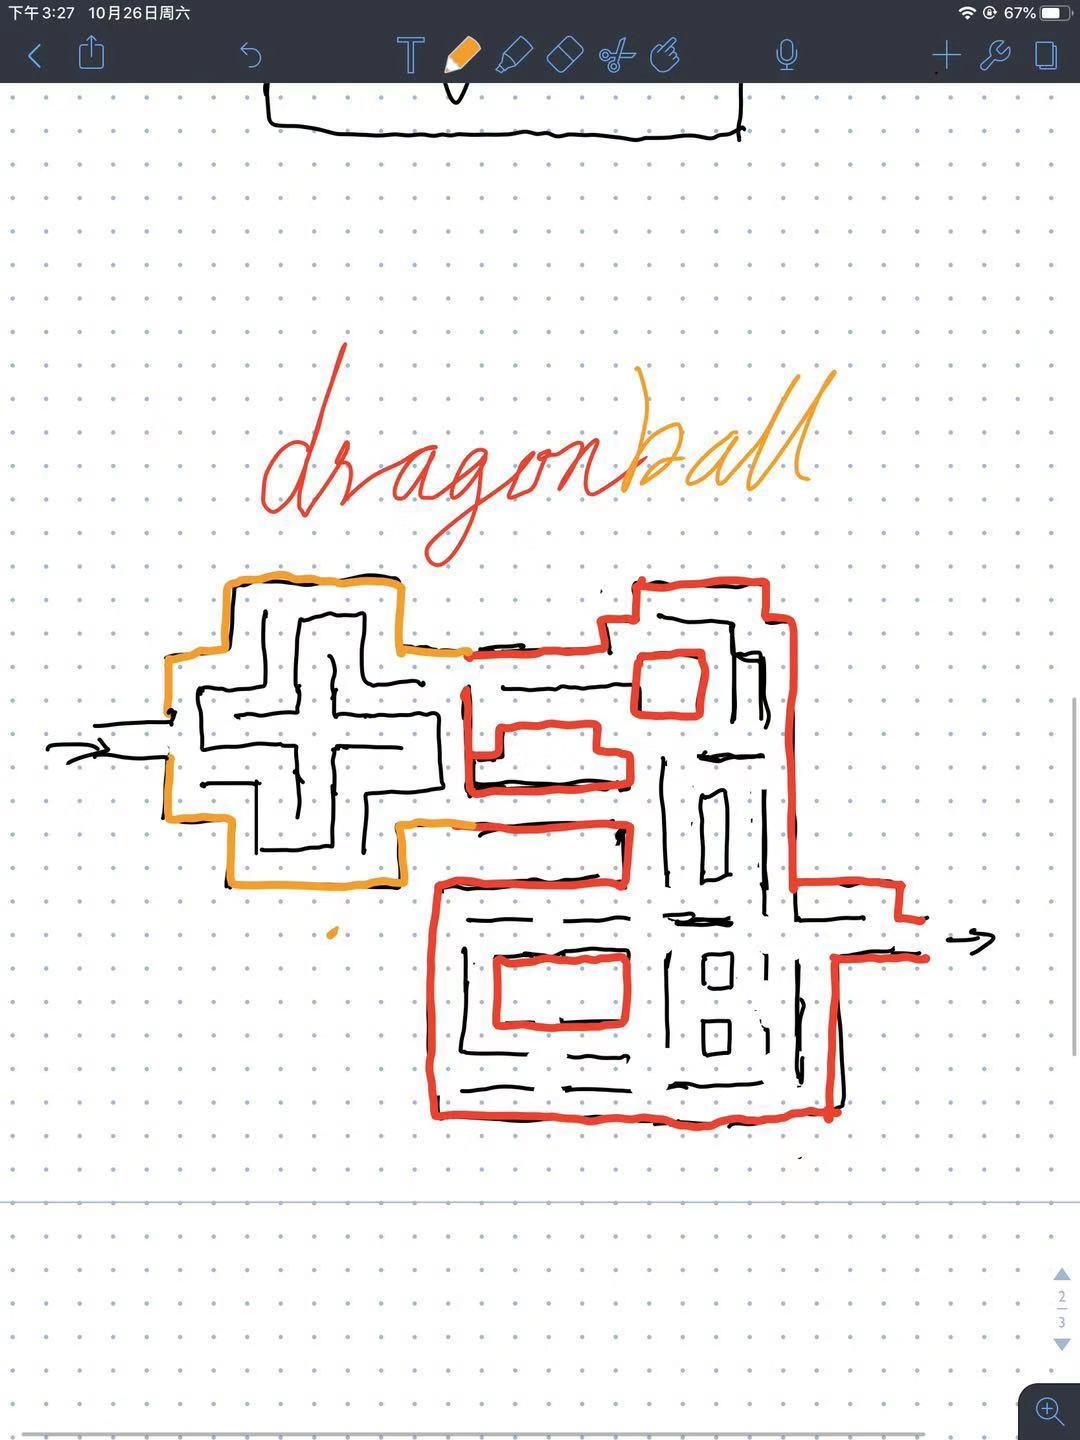 下午3:27 10月26日周六 67%
T
dragonball
2
3